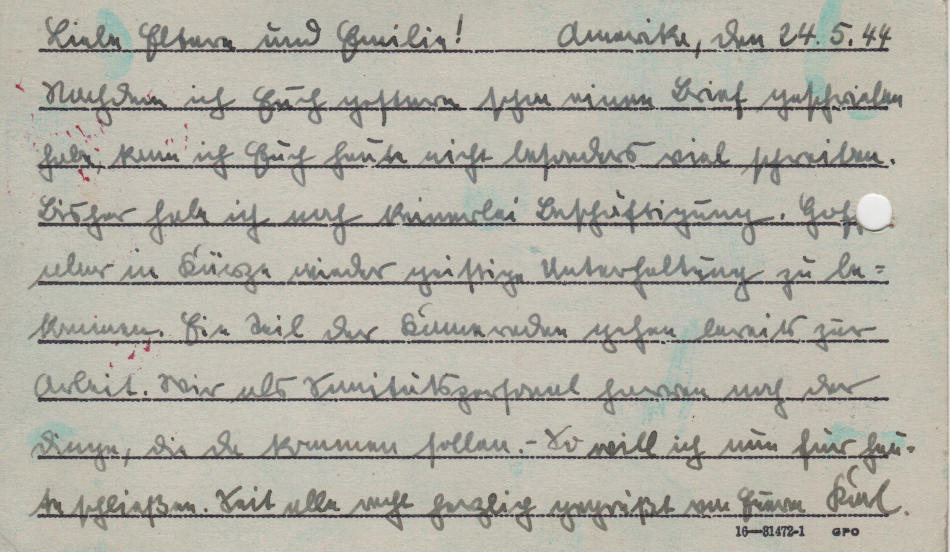 Liebe Eltern und Emilie! Amerika, den 24.5.44
Nachdem ich Euch gestern schon einen Brief geschrieben
habe, kann ich Euch heute nicht besonders viel schreiben.
Bisher habe ich noch keinerlei Beschäftigung. Hoff
aber in Kürze wieder geistige Unterhaltung zu be=
kommen. Ein Teil der Kameraden gehen bereits zur
Arbeit. Wir als Sanitätspersonal harren noch der
Dinge, die da kommen sollen. - So will ich nun für heu-
te schließen. Seit alle recht herzlich gegrüßt von Euerm Karl.
16—31472-1 GPO